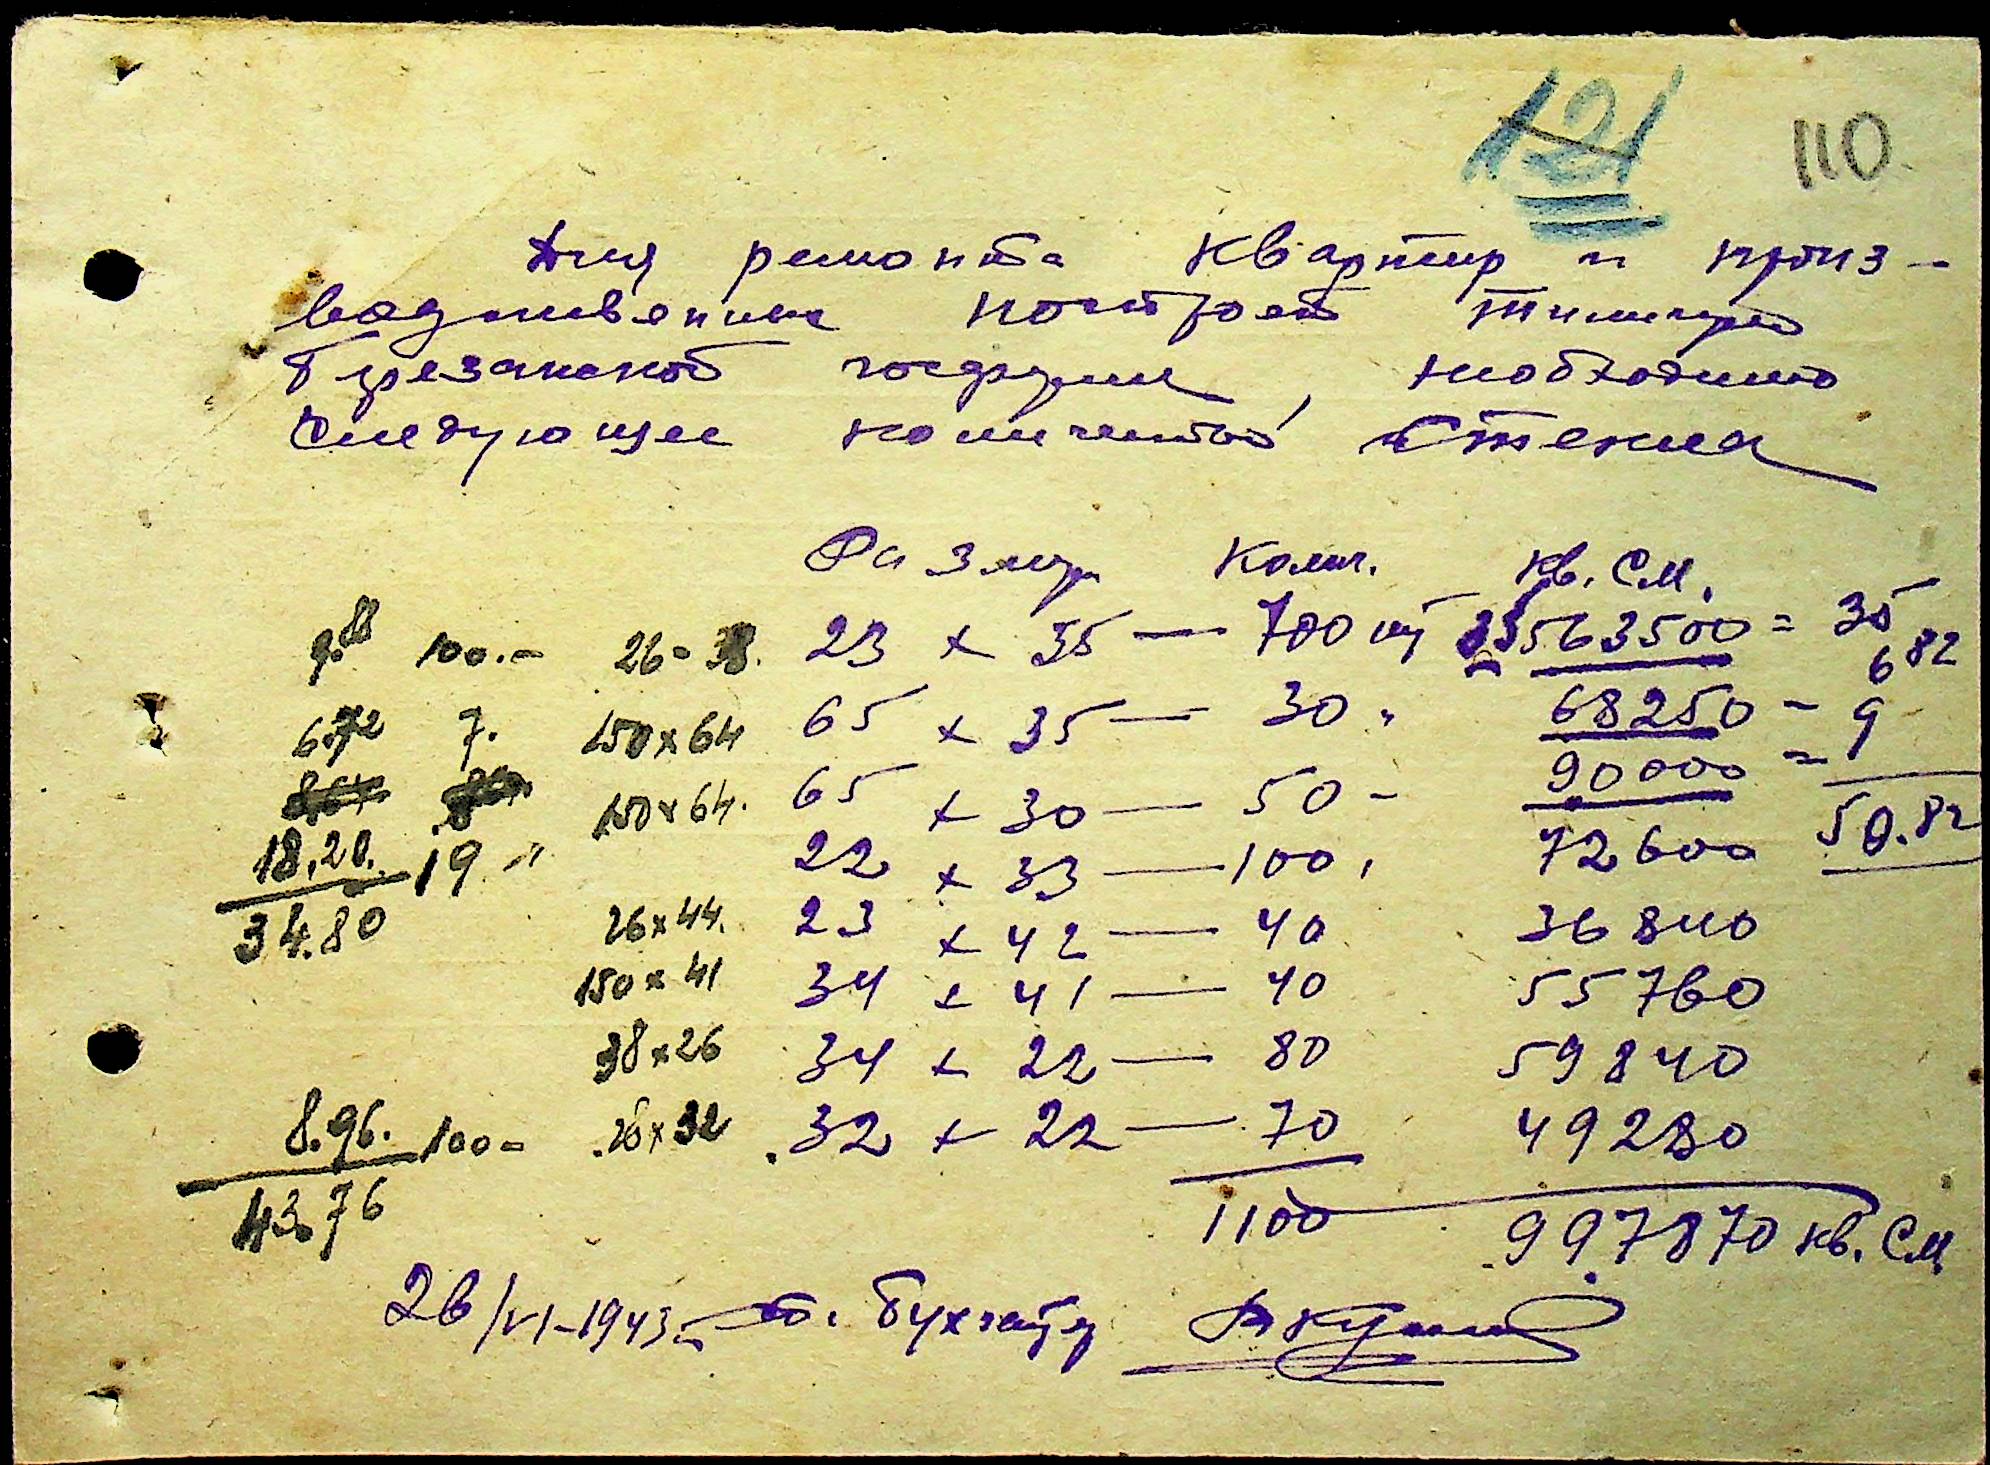 121 110
Для ремонта квартир и произ-
водственных построек
Брезанской , необходимо
следующее количество стекла
Размер Колич. кв. см.
9.88 100.- 26 - 38. 23 × 35 — 700 шт 563500 = 35
6 82
6.72 7. 150×64 65 × 35 — 30 " 68250 - 9
150×64. 65 × 30 — 50 - 90000 =
18.20. 19 " 22 × 33 — 100 , 72600 50.82
34.80 26×44. 23 × 42 — 40 36840
150 × 41 34 × 41 — 40 55760
38×26 34 × 22 — 80 59840
8.96. 100- 26×32 32 × 22 — 70 49280
43.76 1100 997870 кв. см
26/VI-1943 г. бухгалтер